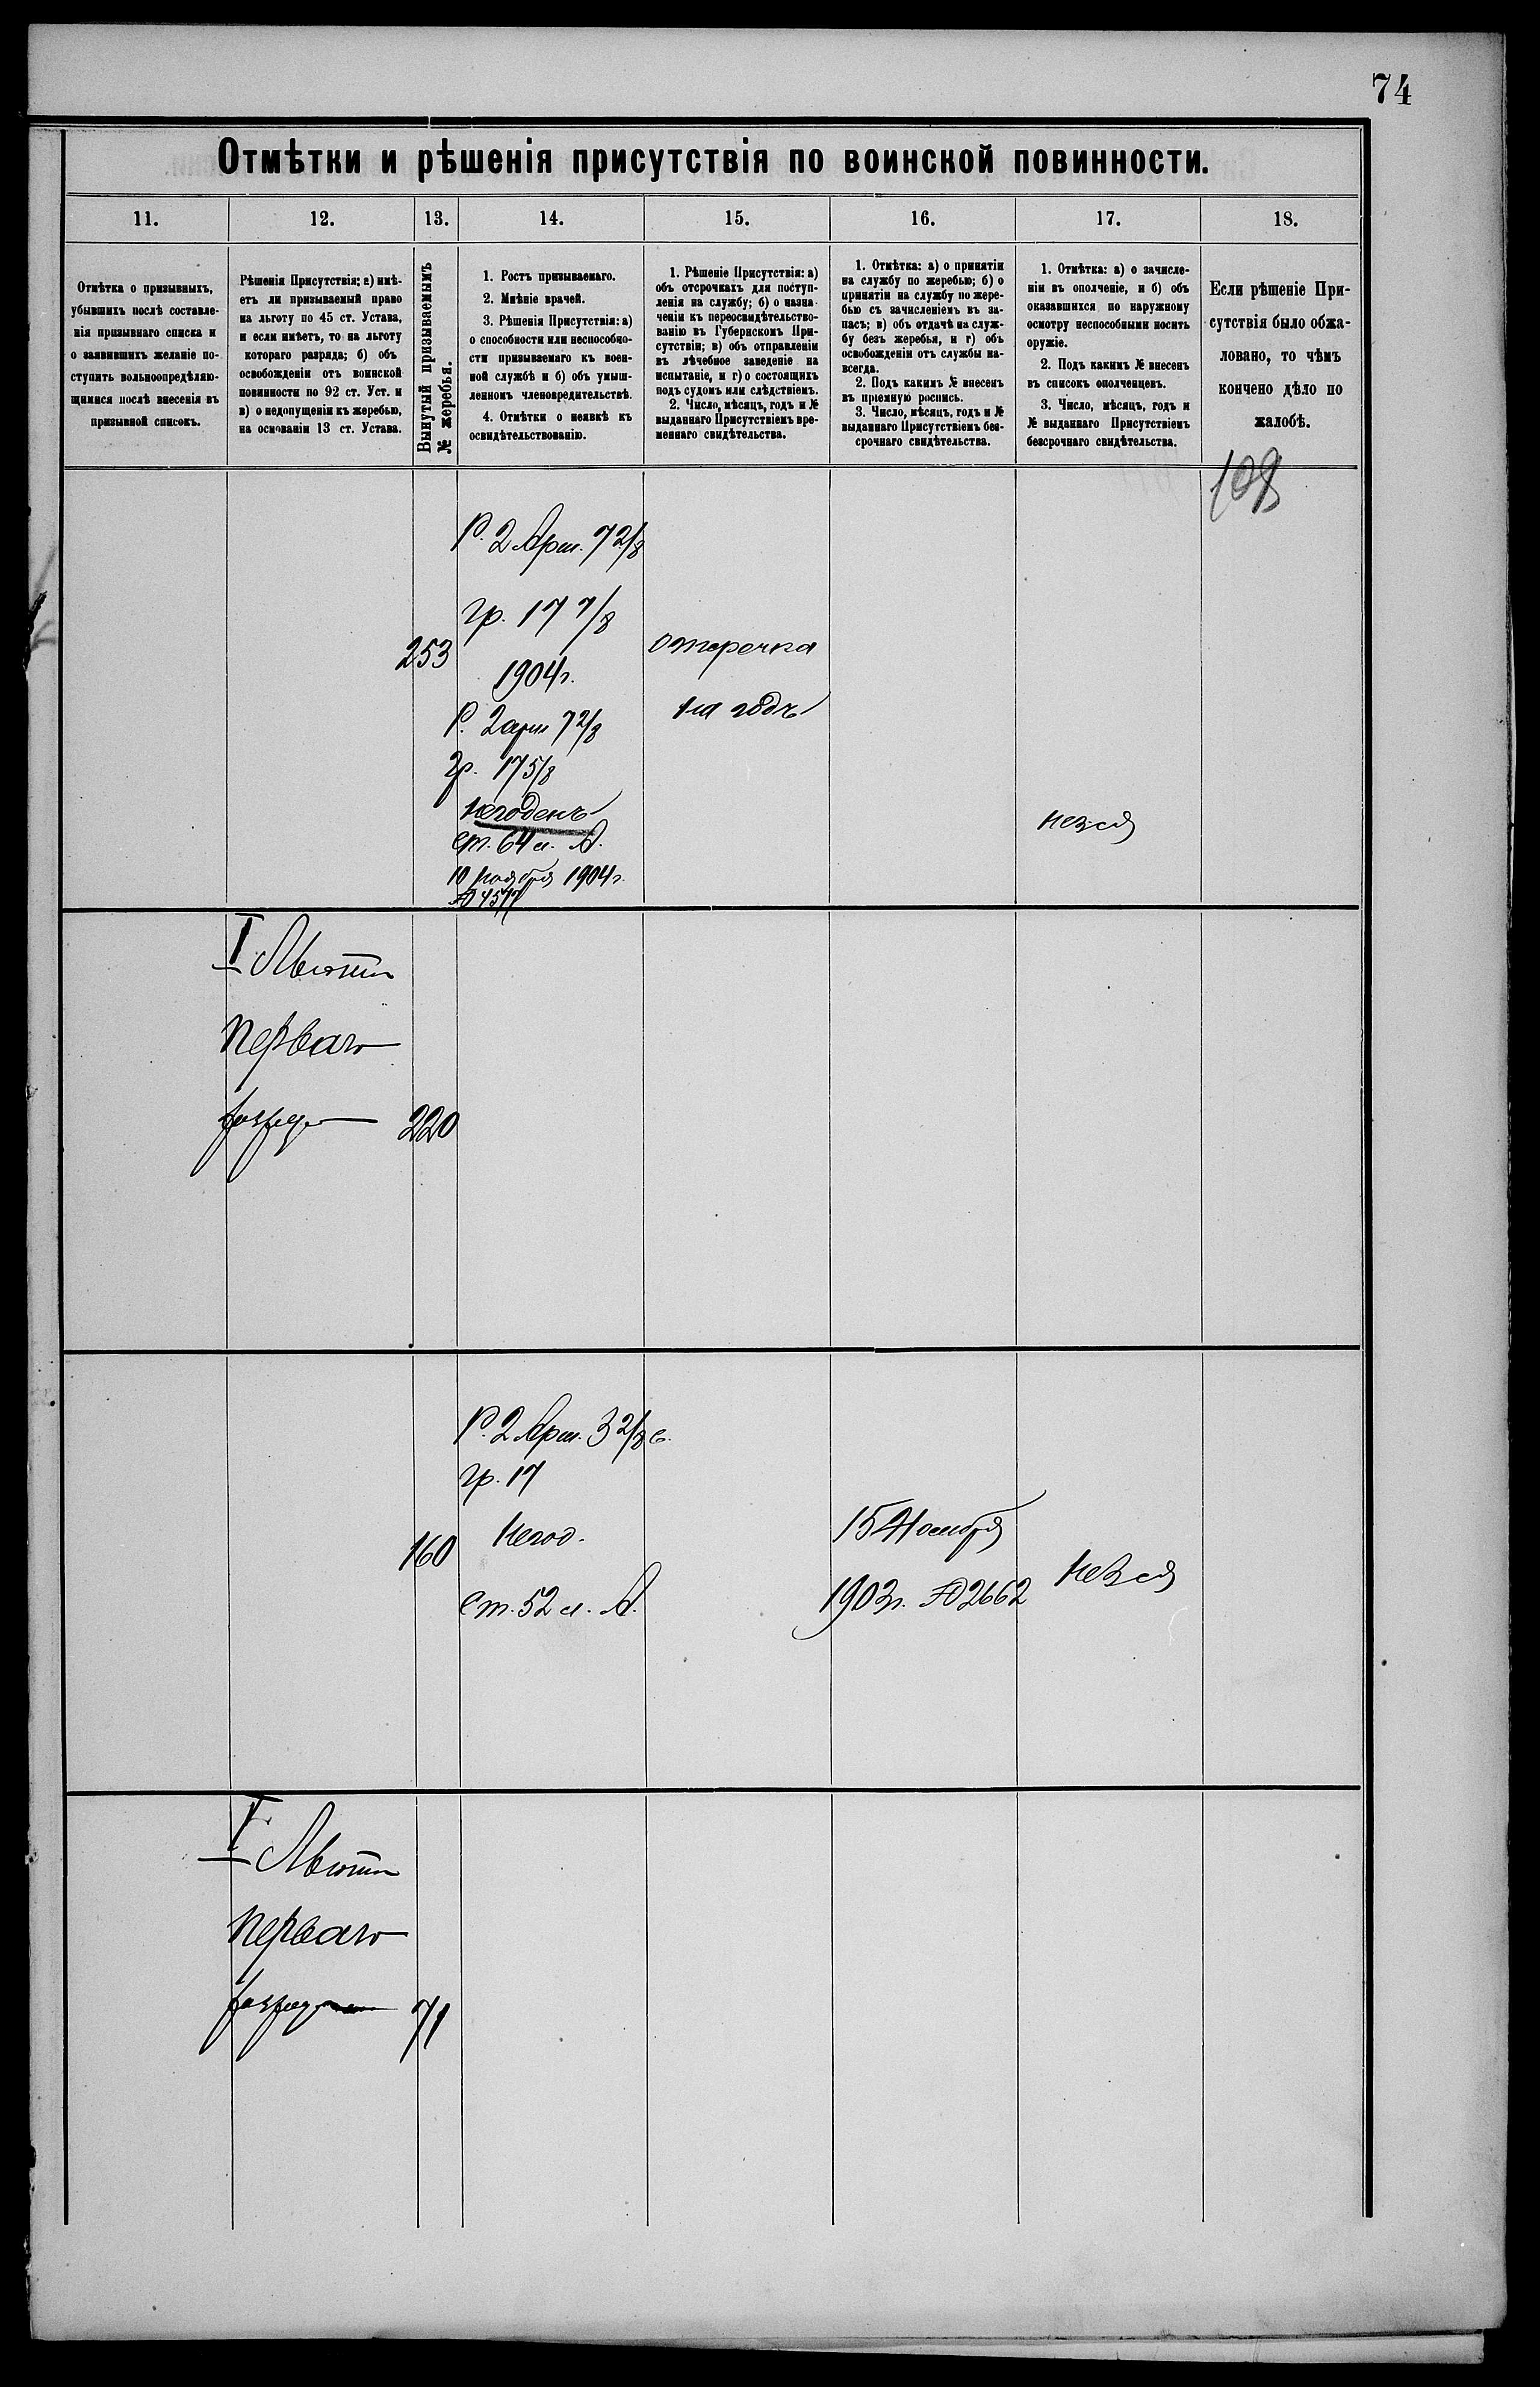 74
Отмѣтки и рѣшенія присутствія по воинской повинности.
11. 12. 13. 14. 15. 16. 17. 18.
Отмѣтка о призывныхъ,
убывшихъ послѣ составле-
нія призывнаго списка и
о заявившихъ желаніе по-
ступить вольноопредѣляю-
щимися послѣ внесенія въ
призывной списокъ.
Рѣшенія Присутствія: а) имѣ-
етъ ли призываемый право
на льготу по 45 ст. Устава,
и если имѣетъ, то на льготу
котораго разряда; б) объ
освобожденіи отъ воинской
повинности по 92 ст. Уст. и
в) о недопущеніи къ жеребью,
на основаніи 13 ст. Устава.
Вынутый призываемымъ
№ жеребья.
1. Ростъ призываемаго.
2. Мнѣніе врачей.
3. Рѣшенія Присутствія: а)
о способности или неспособно-
сти призываемаго къ воен-
ной службѣ и б) объ умыш-
ленномъ членовредительствѣ.
4. Отмѣтки о неявкѣ къ
освидѣтельствованію.
1. Рѣшеніе Присутствія: а)
объ отсрочкахъ для поступ-
ленія на службу; б) о назна-
ченіи къ переосвидѣтельство-
ванію въ Губернскомъ При-
сутствіи; в) объ отправленіи
въ лѣчебное заведеніе на
испытаніе, и г) о состоящихъ
подъ судомъ или слѣдствіемъ.
2. Число, мѣсяцъ, годъ и №
выданнаго Присутствіемъ вре-
меннаго свидѣтельства.
1. Отмѣтка: а) о принятіи
на службу по жеребью; б) о
принятіи на службу по жере-
бью съ зачисленіемъ въ за-
пасъ; в) объ отдачѣ на служ-
бу безъ жеребья, и г) объ
освобожденіи отъ службы на-
всегда.
2. Подъ какимъ № внесенъ
въ пріемную роспись.
3. Число, мѣсяцъ, годъ и №
выданнаго Присутствіемъ без-
срочнаго свидѣтельства.
1. Отмѣтка: а) о зачисле-
ніи въ ополченіе, и б) объ
оказавшихся по наружному
осмотру неспособными носить
оружіе.
2. Подъ какимъ № внесенъ
въ списокъ ополченцевъ.
3. Число, мѣсяцъ, годъ и
№ выданнаго Присутствіемъ
безсрочнаго свидѣтельства.
Если рѣшеніе При-
сутствія было обжа-
ловано, то чѣмъ
кончено дѣло по
жалобѣ.
253
Р. 2 Арш. 7 2/8
гр. 17 7/8
1904 г.
Р. 2 арш 7 2/8
гр. 17 5/8
негоденъ
ст. 64 л. А.
10 Ноября 1904 г.
№ 4577
отсрочка
на годъ
I Льготы
перваго
разряда
220
160
Р. 2 Арш. 3 2/8 в.
гр. 17
Негод.
ст. 52 л. А.
15 Ноября
1903 г. № 2662
I Льготы
перваго
разряда
71